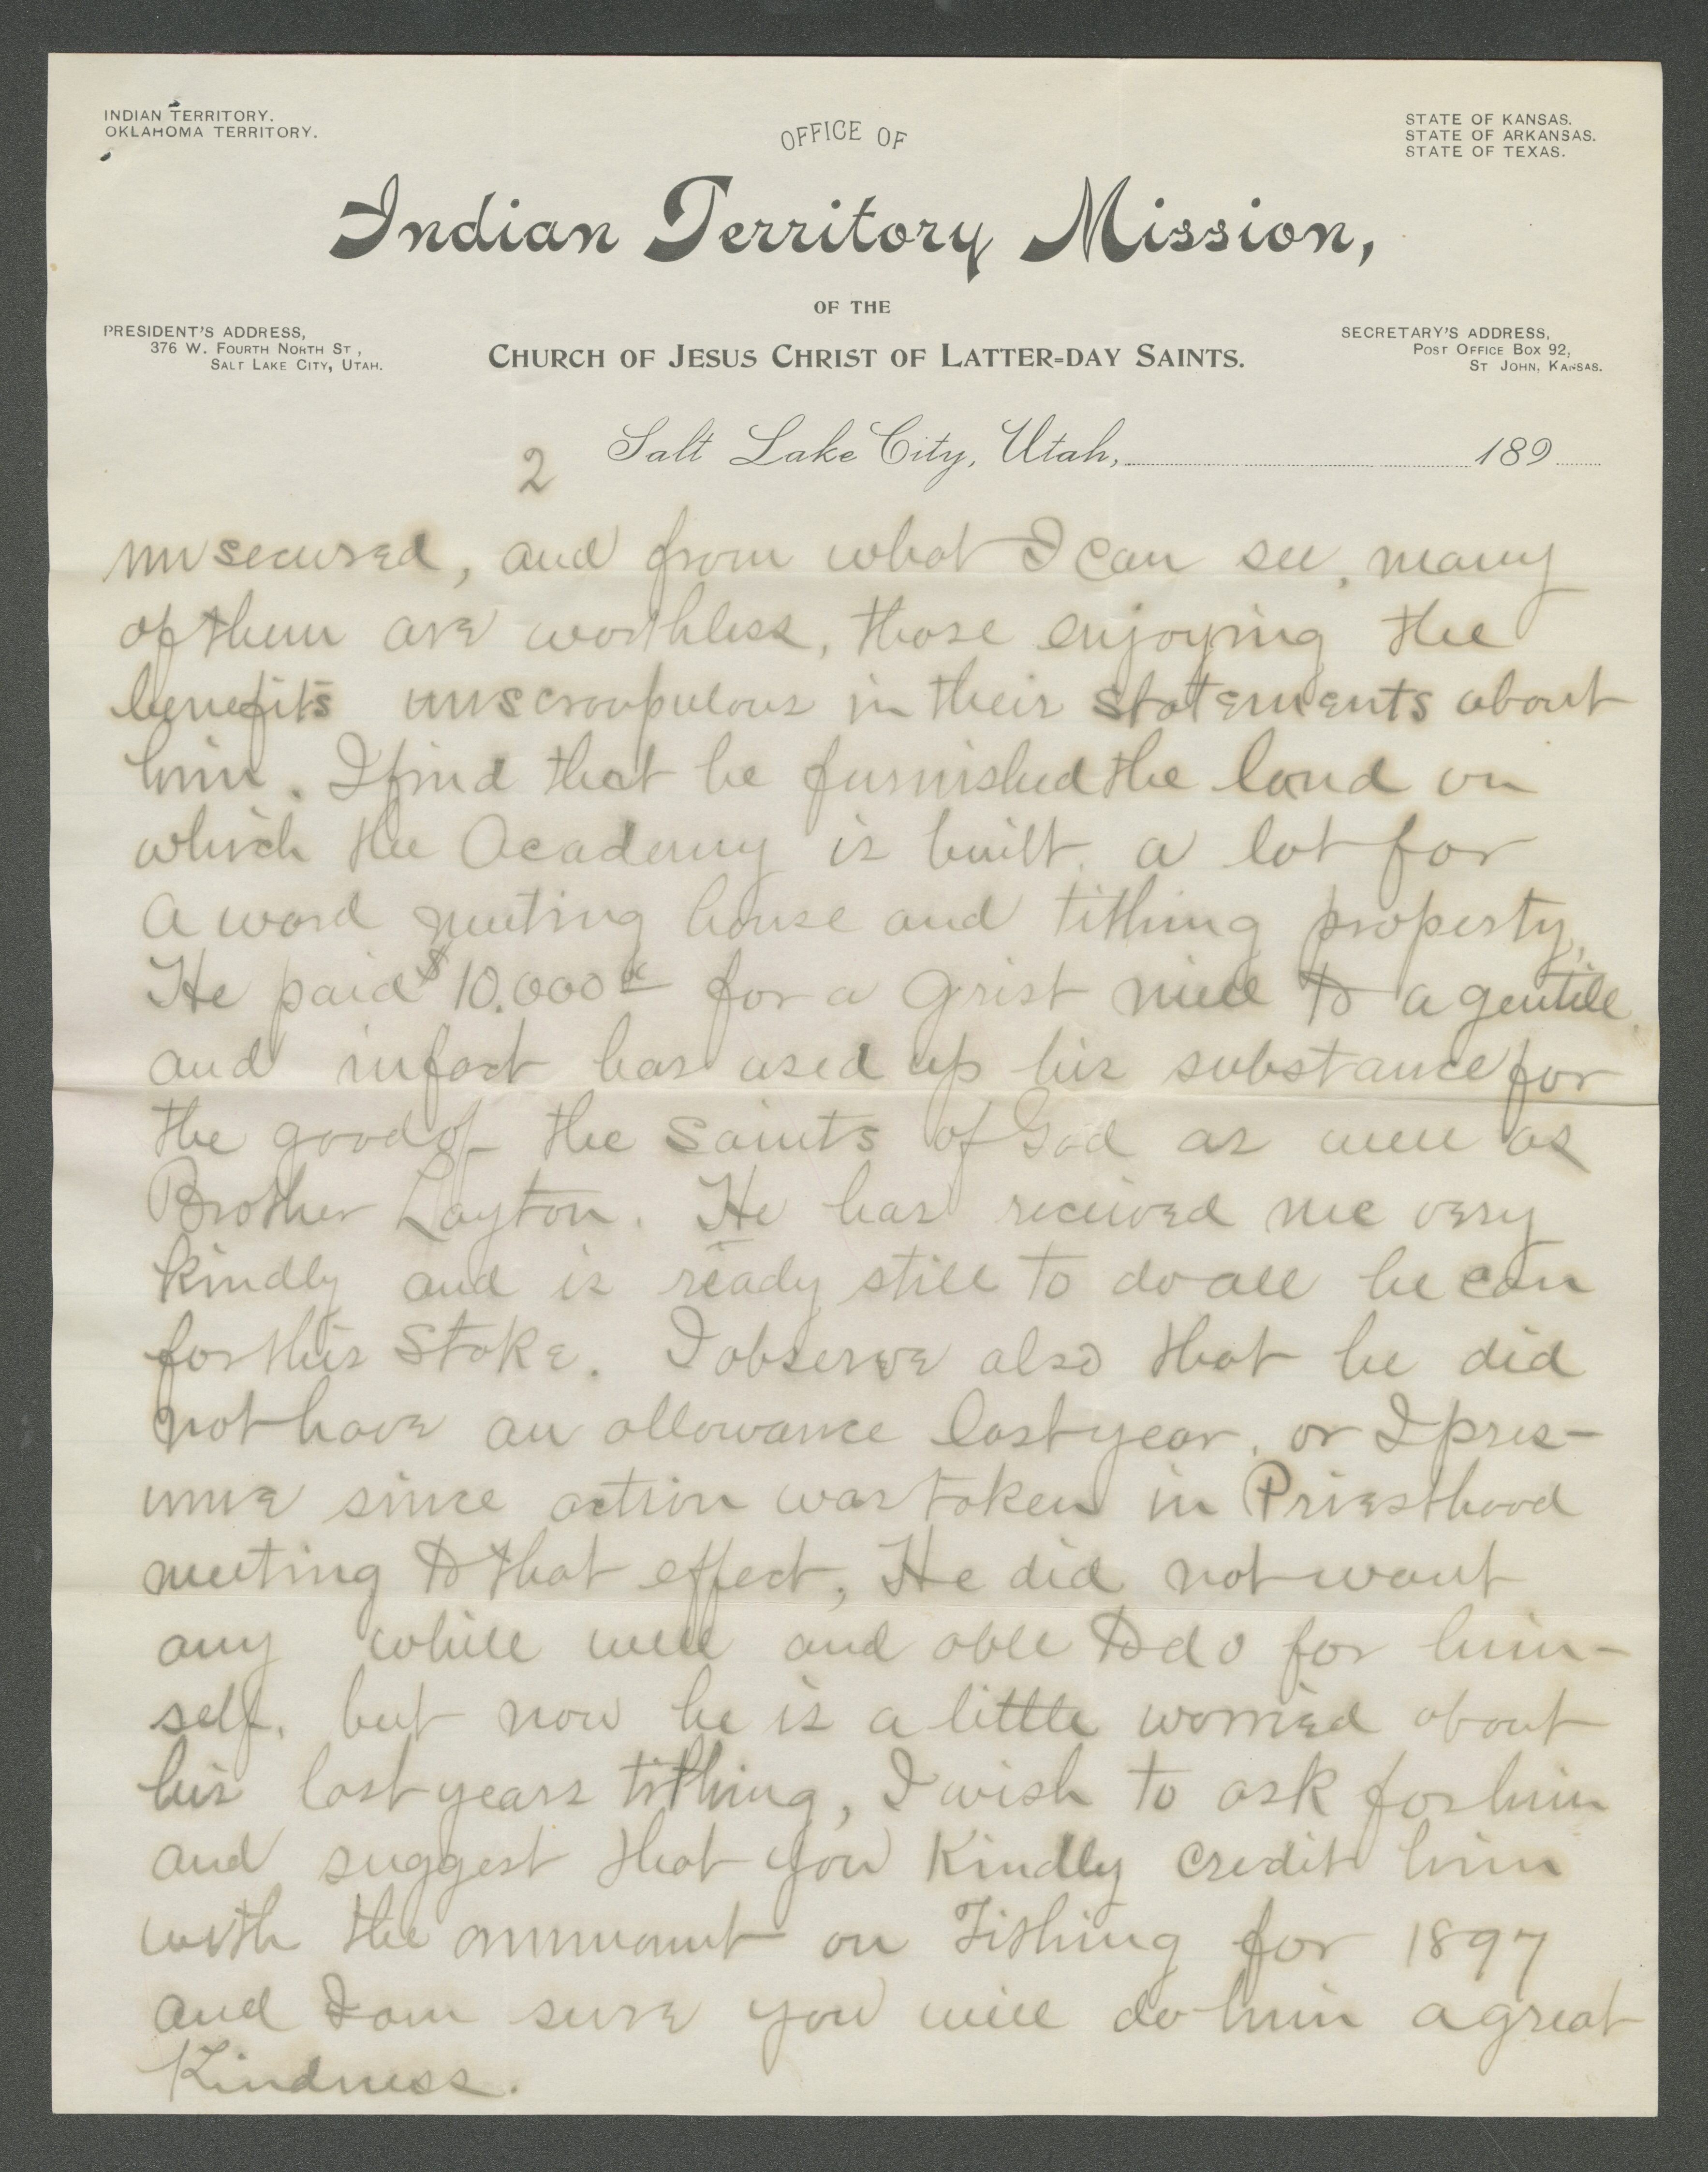 INDIAN TERRITORY.
OKLAHOMA TERRITORY.
OFFICE OF
STATE OF KANSAS.
STATE OF ARKANSAS.
STATE OF TEXAS.
Indian Territory Mission,
OF THE
CHURCH OF JESUS CHRIST OF LATTER-DAY SAINTS.
PRESIDENT'S ADDRESS,
376 W. FOURTH NORTH ST,
SALT LAKE CITY, UTAH.
SECRETARY'S ADDRESS,
POST OFFICE BOX 92,
ST JOHN, KANSAS.
Salt Lake City, Utah, 189
2
unsecured, and from what I can see, many
of them are worthless, those enjoying the
benefits unscroupulous in their statements about
him. I find that he furnished the land on
which the Academy is built, a lot for
a ward meeting house and tithing property,
He paid $10.000 for a grist mill to a gentile,
and infact has used up his substance for
the good of the Saints of God as well as
Brother Layton. He has received me very
kindly and is ready still to do all he can
for this Stake. I observe also that he did
not have an allowance last year, or I pres-
ume since action was taken in Priesthood
meeting to that effect, He did not want
any while well and able to do for him-
self, but now he is a little worried about
his last years tithing, I wish to ask for him
and suggest that you Kindly credit him
with the ammount on Tithing for 1897
and I am sure you will do him a great
Kindness.